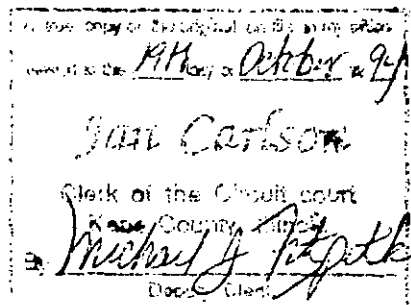 true copy of the original on file in my office
the 19th day of October 94
Jan Carlson
Clerk of the Circuit court
Kane County
Michael J Fitzpatk
Clerk